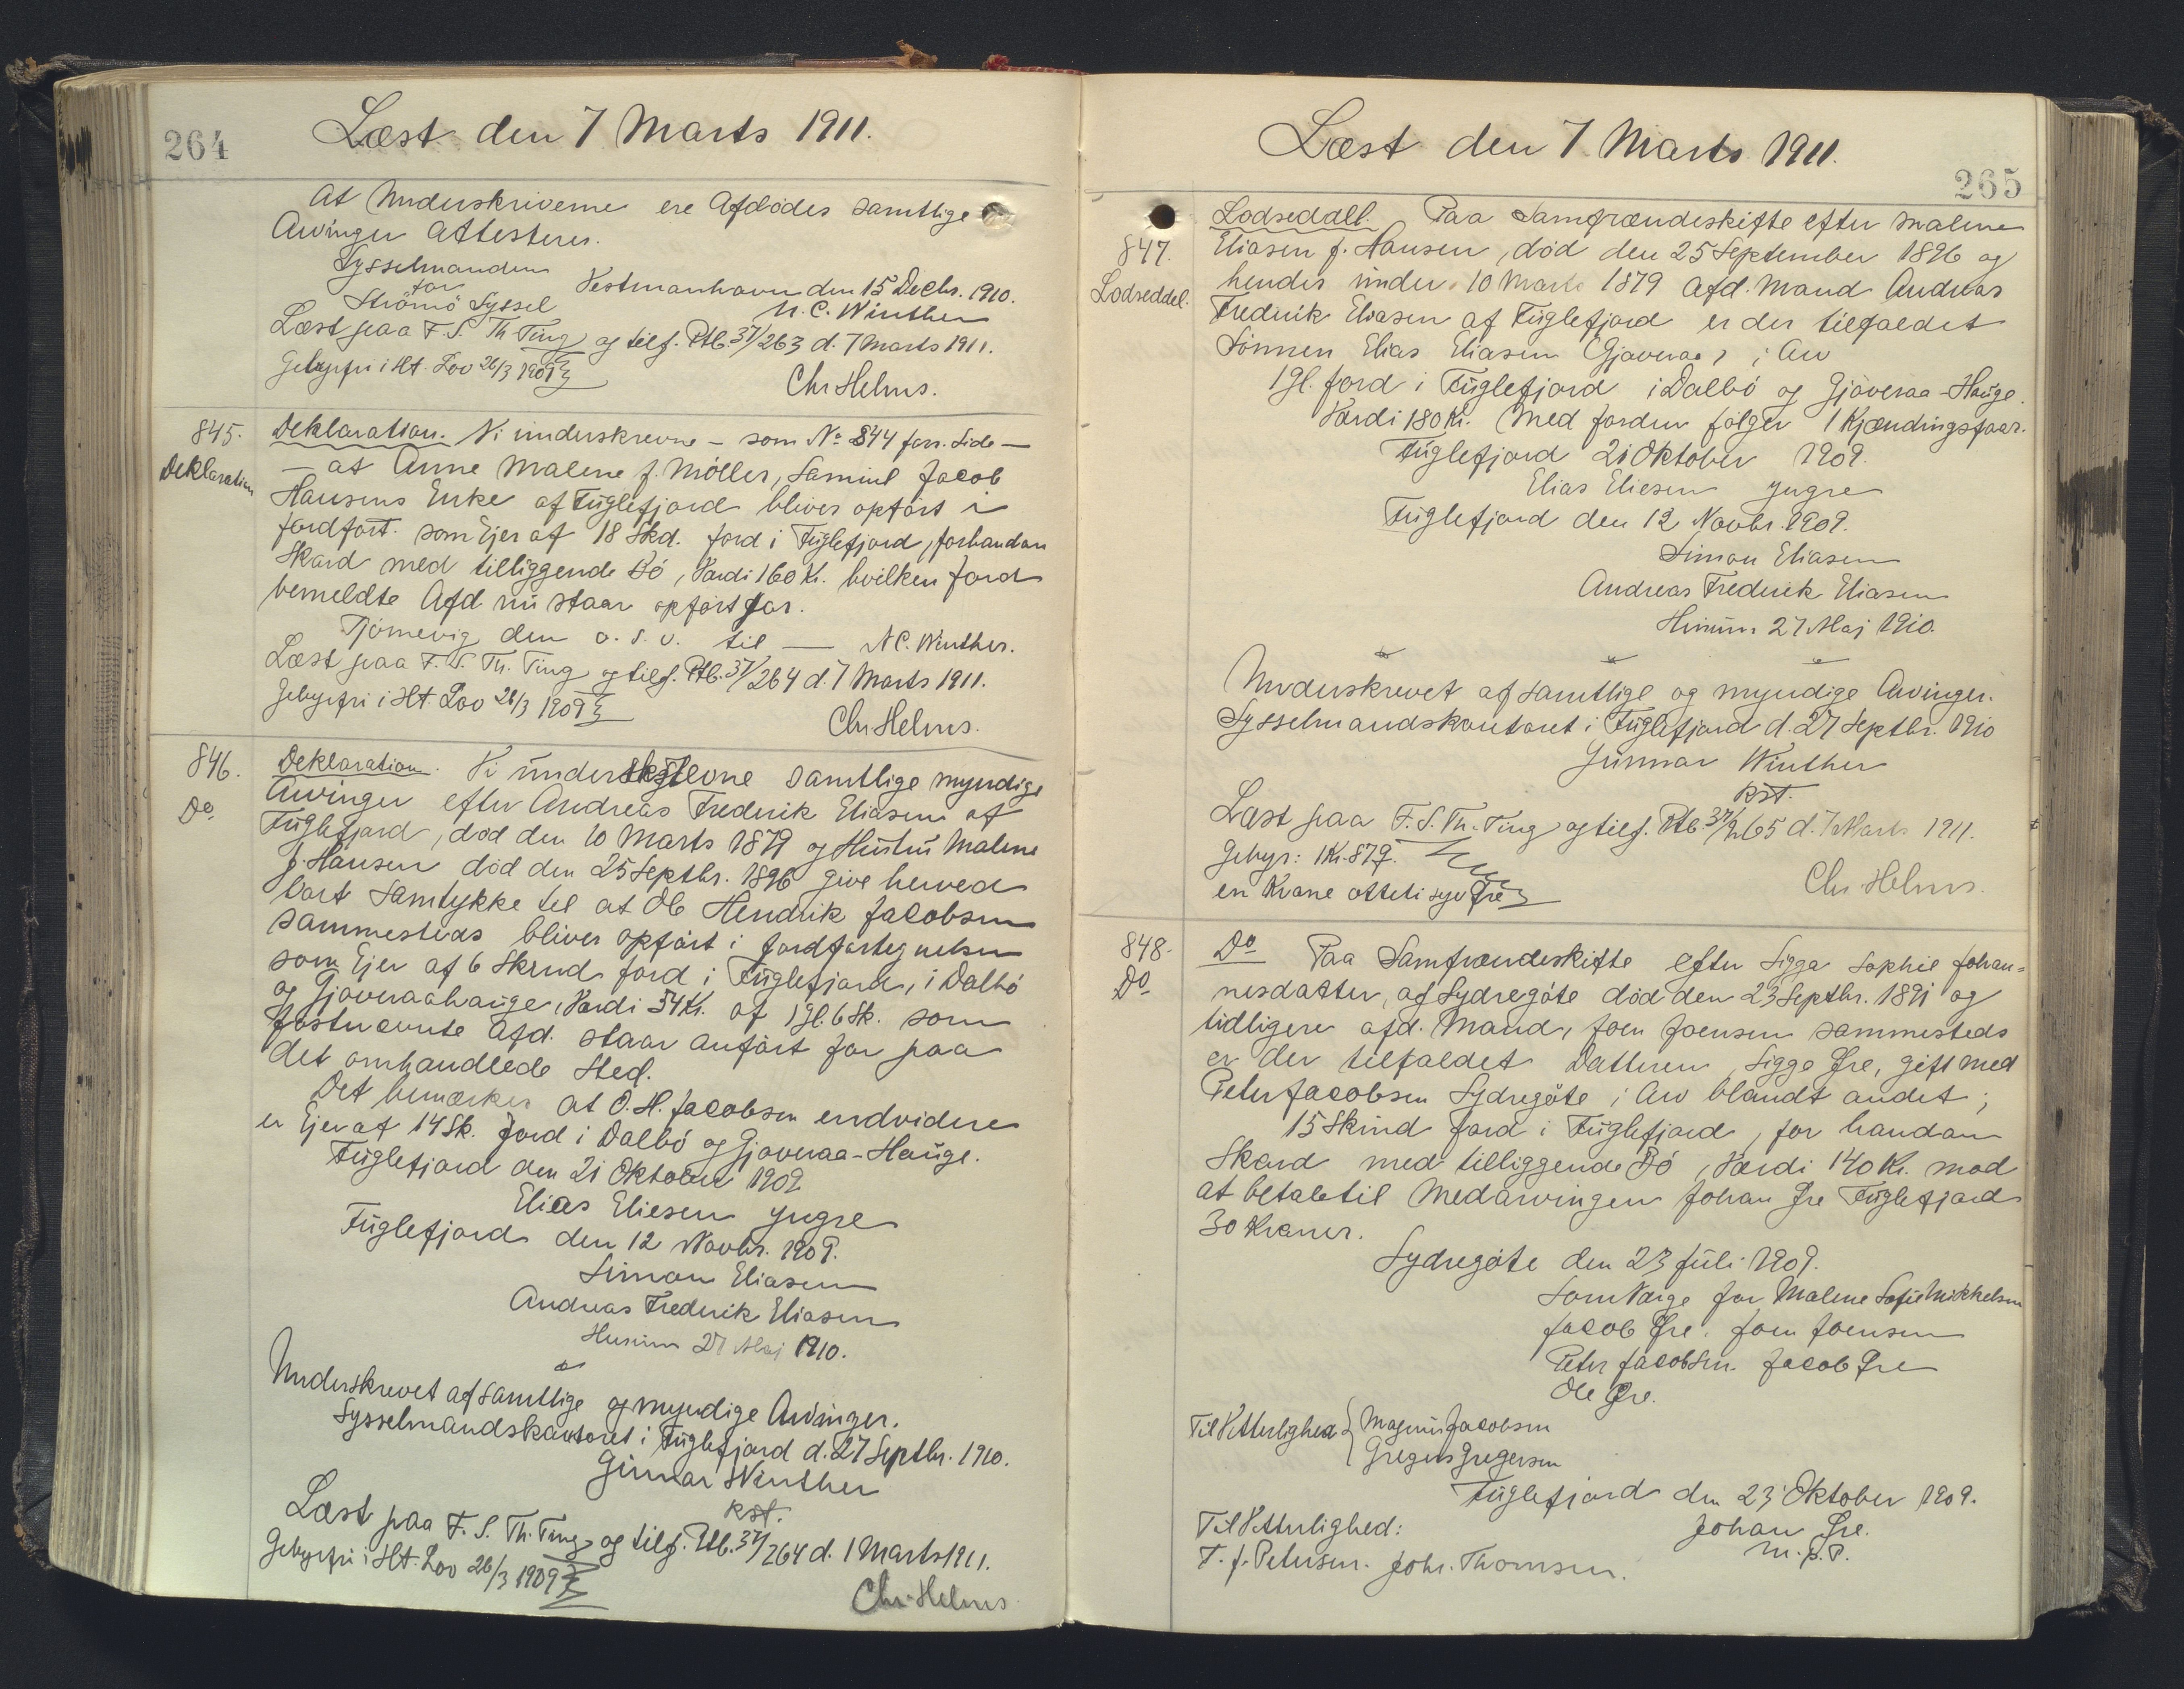 264
Læst den 7 Marts 1911.
At Underskriverne ere Afdödes samtlige
Arvinger Attesteres.
Sysselmanden
for
Strömö Syssel
Vestmanhavn den 15 Decbr. 1910.
N. C. Winther
Læst paa F. S. Th. Ting og tilf. Ptb. 37/263 d. 7 Marts 1911.
Gebyrfri i Ht. Lov 26/3 1909
Chr Helms.
845.
Deklaration
Deklaration. Vi underskrevne – som No 844 forr. Side –
– at Anne Malene f. Möller, Samuel Jacob
Hansens Enke af Fuglefjord bliver opfört i
Jordfort. som Ejer af 18 Skd. Jord i Fuglefjord, forhandan
Skard med tilliggende Bö, Værdi 160 Kr. hvilken Jord
bemeldte Afd nu staar opfört for.
Tjörnevig den o. s. v. til — N C. Winther.
Læst paa F. S. Th. Ting og tilf. Ptb. 37/264 d. 7 Marts 1911.
Gebyrfri i Ht. Lov 26/3 1909
Chr Helms.
846.
Do
Deklaration. Vi underskrevne samtlige myndige
Arvinger efter Andreas Frederik Eliasen af
Fuglefjord, död den 10 Marts 1879 og Hustru Malene
f. Hansen död den 25 Septbr. 1896 give herved
vort Samtykke til at Ole Hendrik Jacobsen
sammesteds bliver opfört i Jordfortegnelsen
som Ejer af 6 Skind Jord i Fuglefjord, i Dalbö
og Gjaveraahauge, Værdi 54 Kr. af 1 Gl. 6 Sk. som
förstnævnte Afd. staar anfört for paa
det omhandlede Sted.
Det bemærkes at O. H. Jacobsen endvidere
er Ejer af 14 Sk. Jord i Dalbö og Gjaveraa-Hauge.
Fuglefjord den 21 Oktober 1909
Elias Eliesen yngre
Fuglefjord den 12 Novbr. 1909.
Simon Eliasen
Andreas Frederik Eliasen
Husum 27 Maj 1910.
Underskrevet af samtlige og myndige Arvinger.
Sysselmandskontoret i Fuglefjord d. 27 Septbr. 1910.
Gunnar Winther
Kst.
Læst paa F. S. Th. Ting og tilf. Ptb. 37/264 d. 7 Marts 1911.
Gebyrfri i Ht. Lov 26/3 1909
Chr. Helms
Læst den 7 Marts 1911.
265
847.
Lodseddel.
Lodseddel. Paa Samfrændeskifte efter Malene
Eliasen f. Hansen, död den 25 September 1896 og
hendes under 10 Marts 1879 Afd. Mand Andreas
Frederik Eliasen af Fuglefjord er der tilfaldet
Sönnen Elias Eliasen Gjaveraa, i Arv
1 Gl. Jord i Fuglefjord i Dalbö og Gjöveraa-Hauge.
Værdi 180 Kr. Med Jorden fölger 1 Kjændingsfaar.
Fuglefjord 21 Oktober 1909.
Elias Eliesen yngre
Fuglefjord den 12 Novbr. 1909.
Simon Eliasen
Andreas Frederik Eliasen
Husum 27 Maj 1910.
Underskrevet af samtlige og myndige Arvinger.
Sysselmandskontoret i Fuglefjord d. 27 Septbr. 1910
Gunnar Winther
Kst.
Læst paa F. S. Th. Ting og tilf. Ptb. 37/265 d. 7 Marts 1911.
Gebyr: 1 Kr. 87 Ø.
en Krone ottetisyv Øre
Chr Helms.
848.
Do
Do Paa Samfrændeskifte efter Sigga Sophie Johan=
nesdatter, af Sydregöte död den 23 Septbr. 1891 og
tidligere afd. Mand, Joen Joensen sammesteds
er der tilfaldet Datteren Sigga Øre, gift med
Peter Jacobsen Sydregöte i Arv blandt andet;
15 Skind Jord i Fuglefjord, for handan
Skard med tilliggende Bö, Værdi 140 Kr. mod
at betale til Medarvingen Johan Øre Fuglefjord
30 Kroner.
Sydregöte den 23 Juli 1909.
Som Værge for Malene Sofie Mikkelsen
Jacob Øre. Joen Joensen
Peter Jacobsen. Jacob Øre
Ole Øre.
Til Vitterlighed { Magnus Jacobsen
Gregers Gregersen
Fuglefjord den 23 Oktober 1909.
Til Vitterlighed:
Johan Øre.
m. p. P.
T. J. Petersen. Johs. Thomsen.